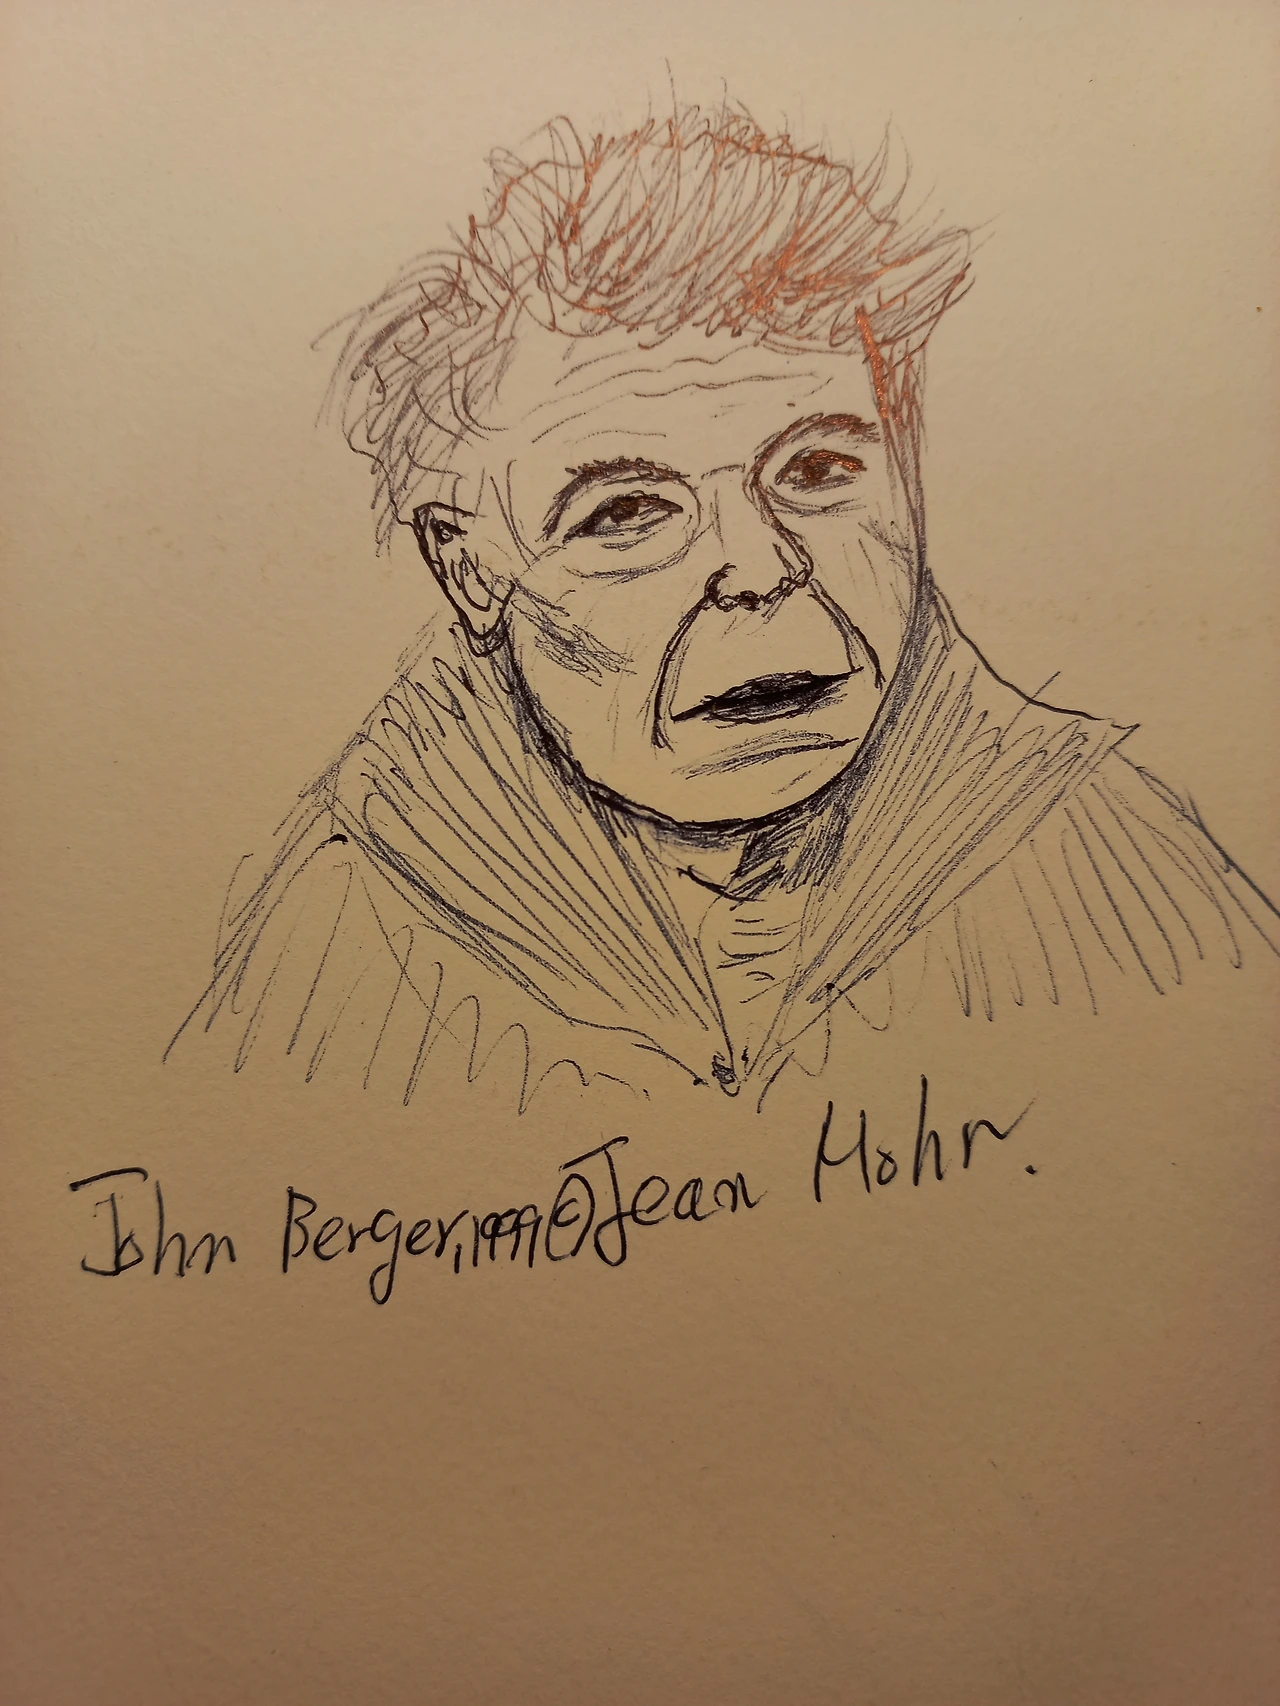 John Berger, 1999 © Jean Mohr.